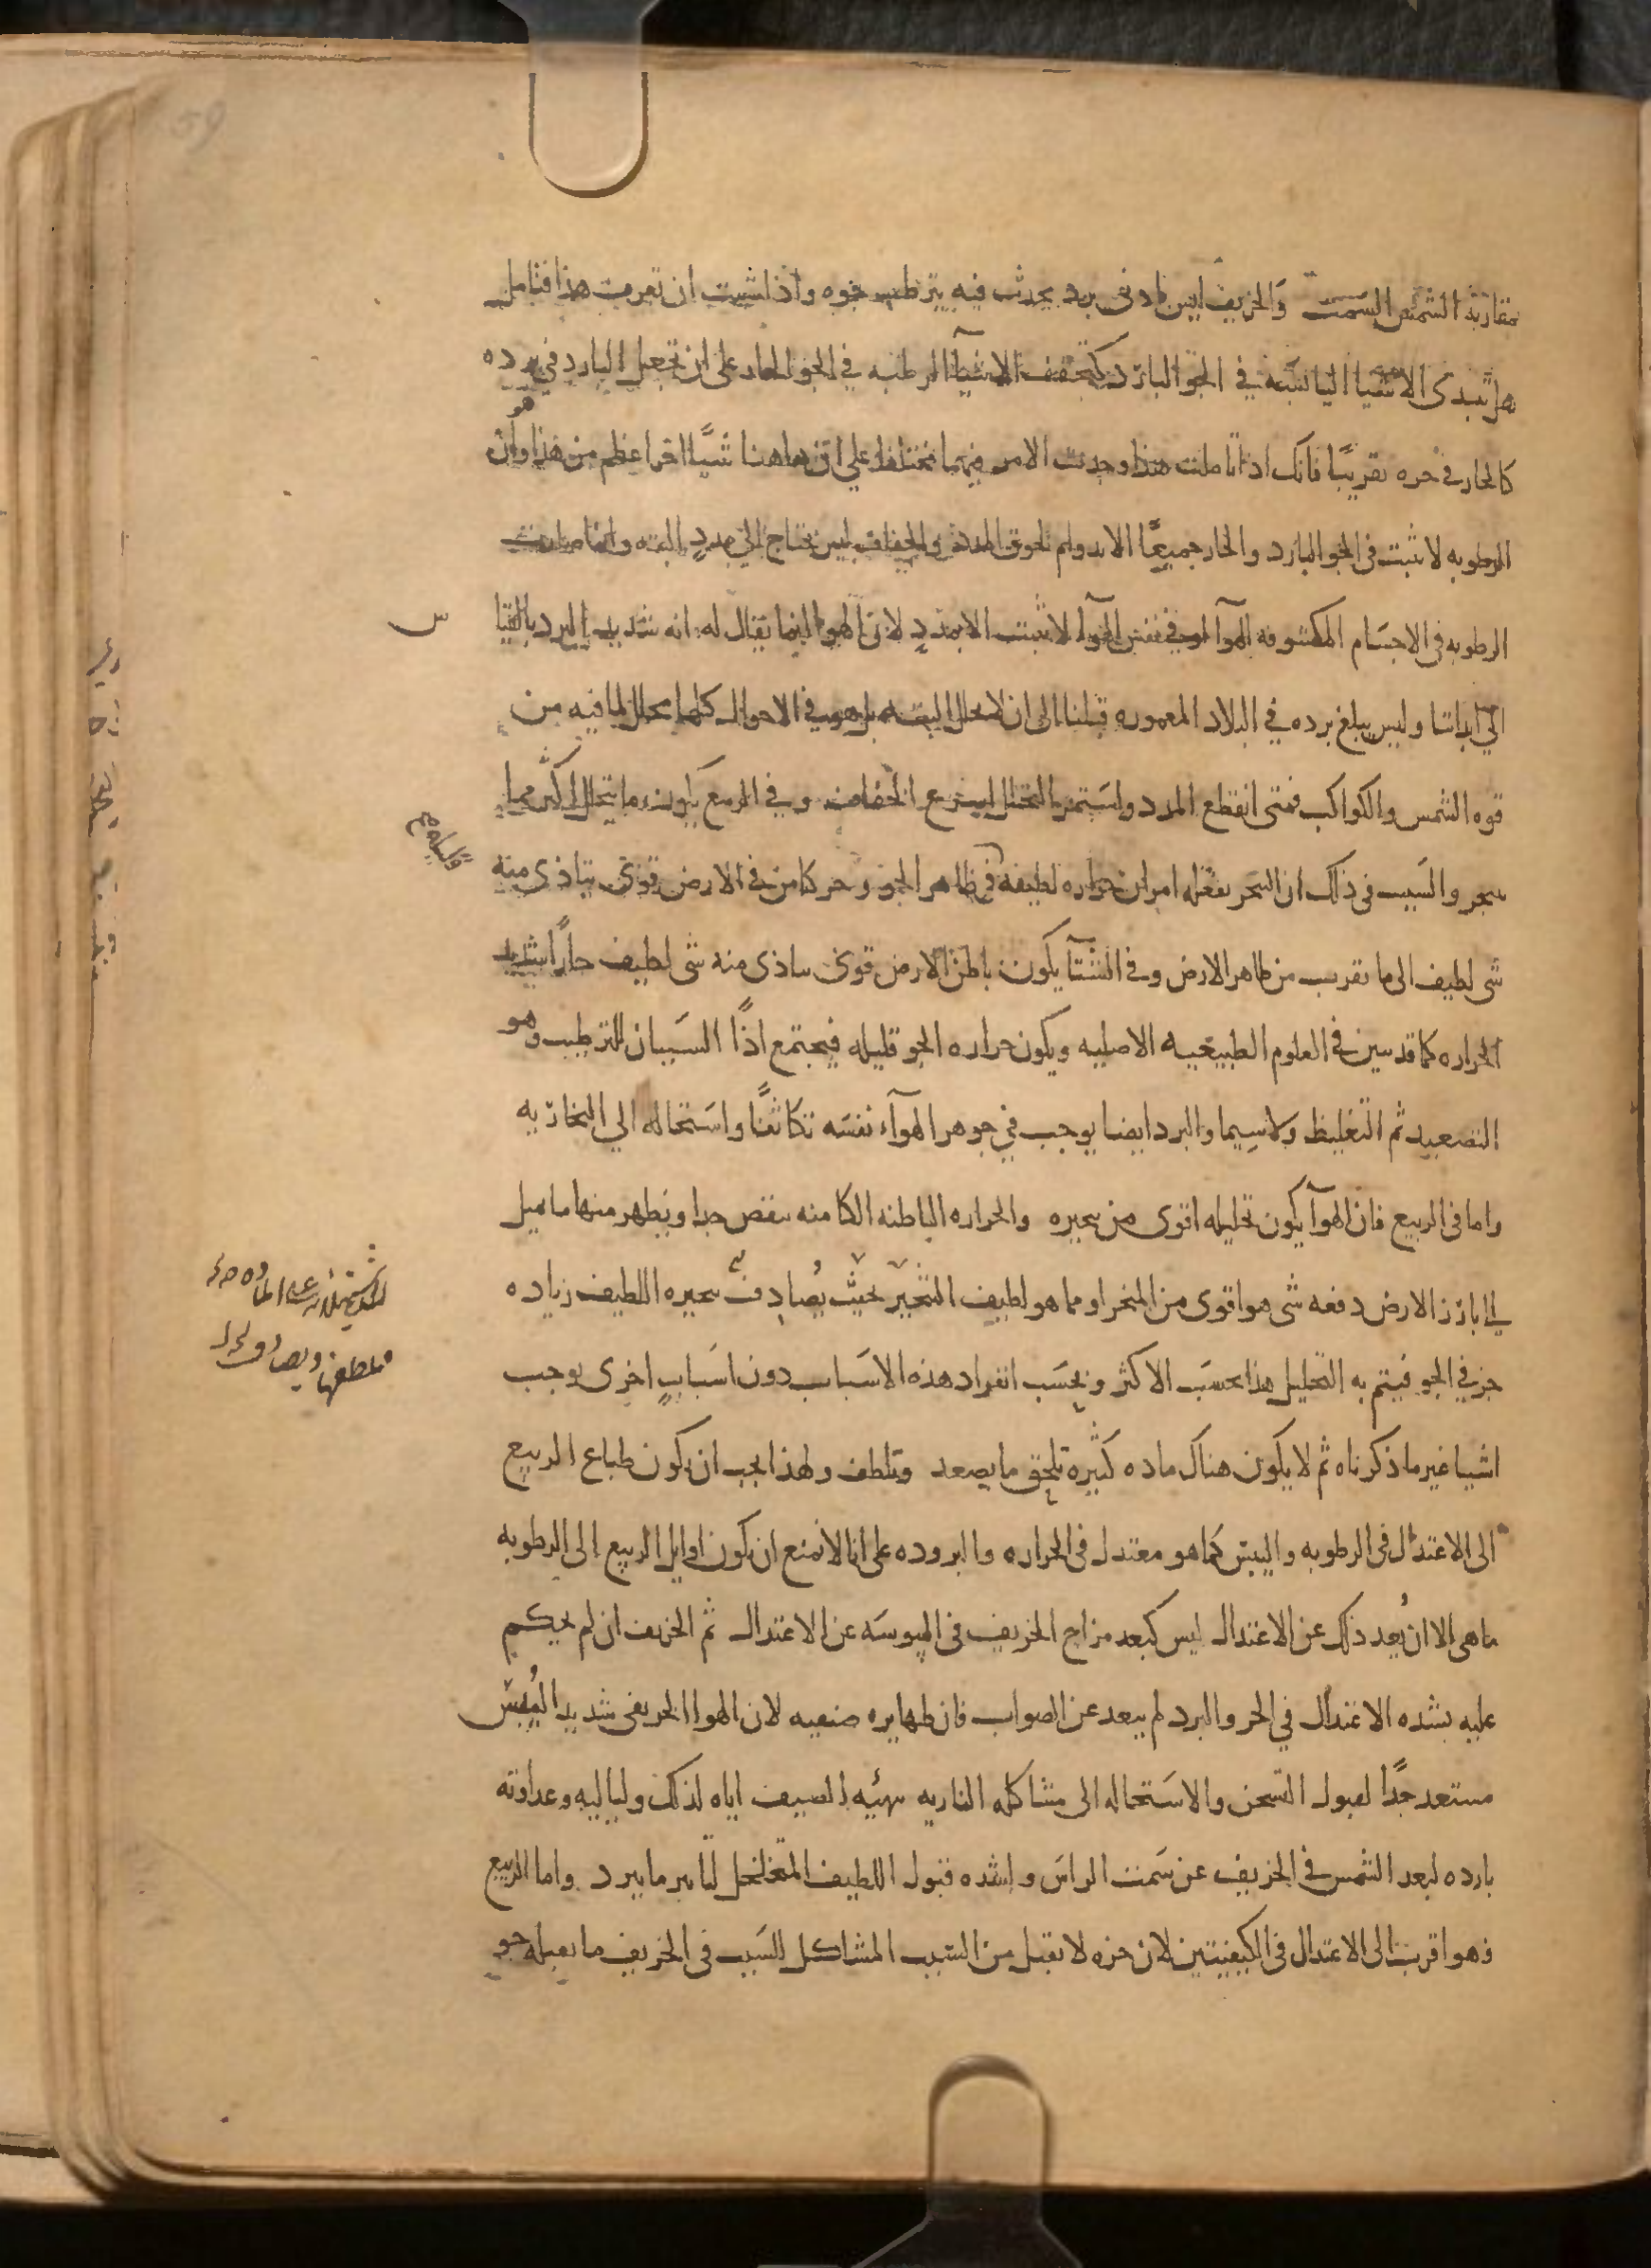 59
بمقاربة الشمس السمت والخريف ليس بادنى برد يحدث فيه يترطب جوه واذا شيت ان تعرف هذا فتامل
هل تبدى الاشيا اليابسه في الجو البارد كتجفيف الاشيآ الرطبه في الجو الحار على ان تجعل البارد في برده
كالحار في حره تقريبًا فانك اذا تاملت هذا وجدت الامر فيهما مختلفا على ان هاهنا شيًا اخر اعظم من هذا وهو ان
الرطوبه لا تثبت في الجو البارد والحار جميعًا الا بدوام لحوق المدد والجفاف ليس يحتاج الى مددٍ البته وانما صارت
الرطوبه في الاجسام المكشوفه للهوآ او في نفس الهوآ لا تثبت الا بمددٍ لان الهوا انما يقال له انه شديد البرد بالقيا
س
الي ابداننا وليس يبلغ برده في البلاد المعموره قبلنا الى ان لا يحلل البته بل هو في الاحوال كلها محلل لما فيه من
قوه الشمس والكواكب فمتى انقطع المدد واستمر التحلل اسرع الجفاف وفي الربيع يكون ما يتحلل اكثر مما
يبخر والسبب في ذلك ان التبخر يفعله امران حراره لطيفة في ظاهر الجو وحر كامن في الارض قوى يتاذى منه
شى لطيف الى ما يقرب من ظاهر الارض وفي الشتآ يكون باطن الارض قوى يتاذى منه شى لطيف حارًا شديد
الحراره كما قد تبين في العلوم الطبيعيه الاصليه ويكون حراره الجو قليله فيجتمع اذًا السببان للترطيب وهو
التصعيد ثم التغليظ ولاسيما والبرد ايضا يوجب في جوهر الهوآء نفسه تكاثفًا واستحاله الي البخاريه
واما في الربيع فان الهوآ يكون تحليله اقوى من تبخيره والحراره الباطنه الكامنه تنقص جدا ويظهر منها ما يميل
الي بارز الارض دفعه شى هو اقوى من المبخر او مما هو لطيف التبخير بحيث يُصادف تبخيره اللطيف زياده
حر في الجو فيتم به التحليل هذا بحسب الاكثر وبحسب انفراد هذه الاسباب دون اسبابٍ اخرى يوجب
اشيا غير ما ذكرناه ثم لا يكون هناك ماده كثيره تلحق ما يصعد وتلطف ولهذا يجب ان يكون طباع الربيع
الى الاعتدال في الرطوبه واليبس كما هو معتدل في الحراره والبروده على انا لا نمنع ان يكون اوايل الربيع الى الرطوبه
ما هى الا ان بُعد ذلك عن الاعتدال ليس كبعد مزاج الخريف في اليبوسه عن الاعتدال ثم الخريف ان لم يحكم
عليه بشده الاعتدال في الحر والبرد لم يبعد عن الصواب فان ظهايره صيفيه لان الهوا الخريفى شديد اليُبس
مستعد جدًا لقبول التسخن والاستحاله الى مشاكله الناريه بتهيئه الصيف اياه لذلك ولياليه وغداوته
بارده لبعد الشمس في الخريف عن سمت الراس ولشده قبول اللطيف المتخلخل لتاثير ما يبرد واما الربيع
فهو اقرب الى الاعتدال في الكيفيتين لان جوه لا يقبل من السبب المشاكل للسبب في الخريف ما يقبله جو